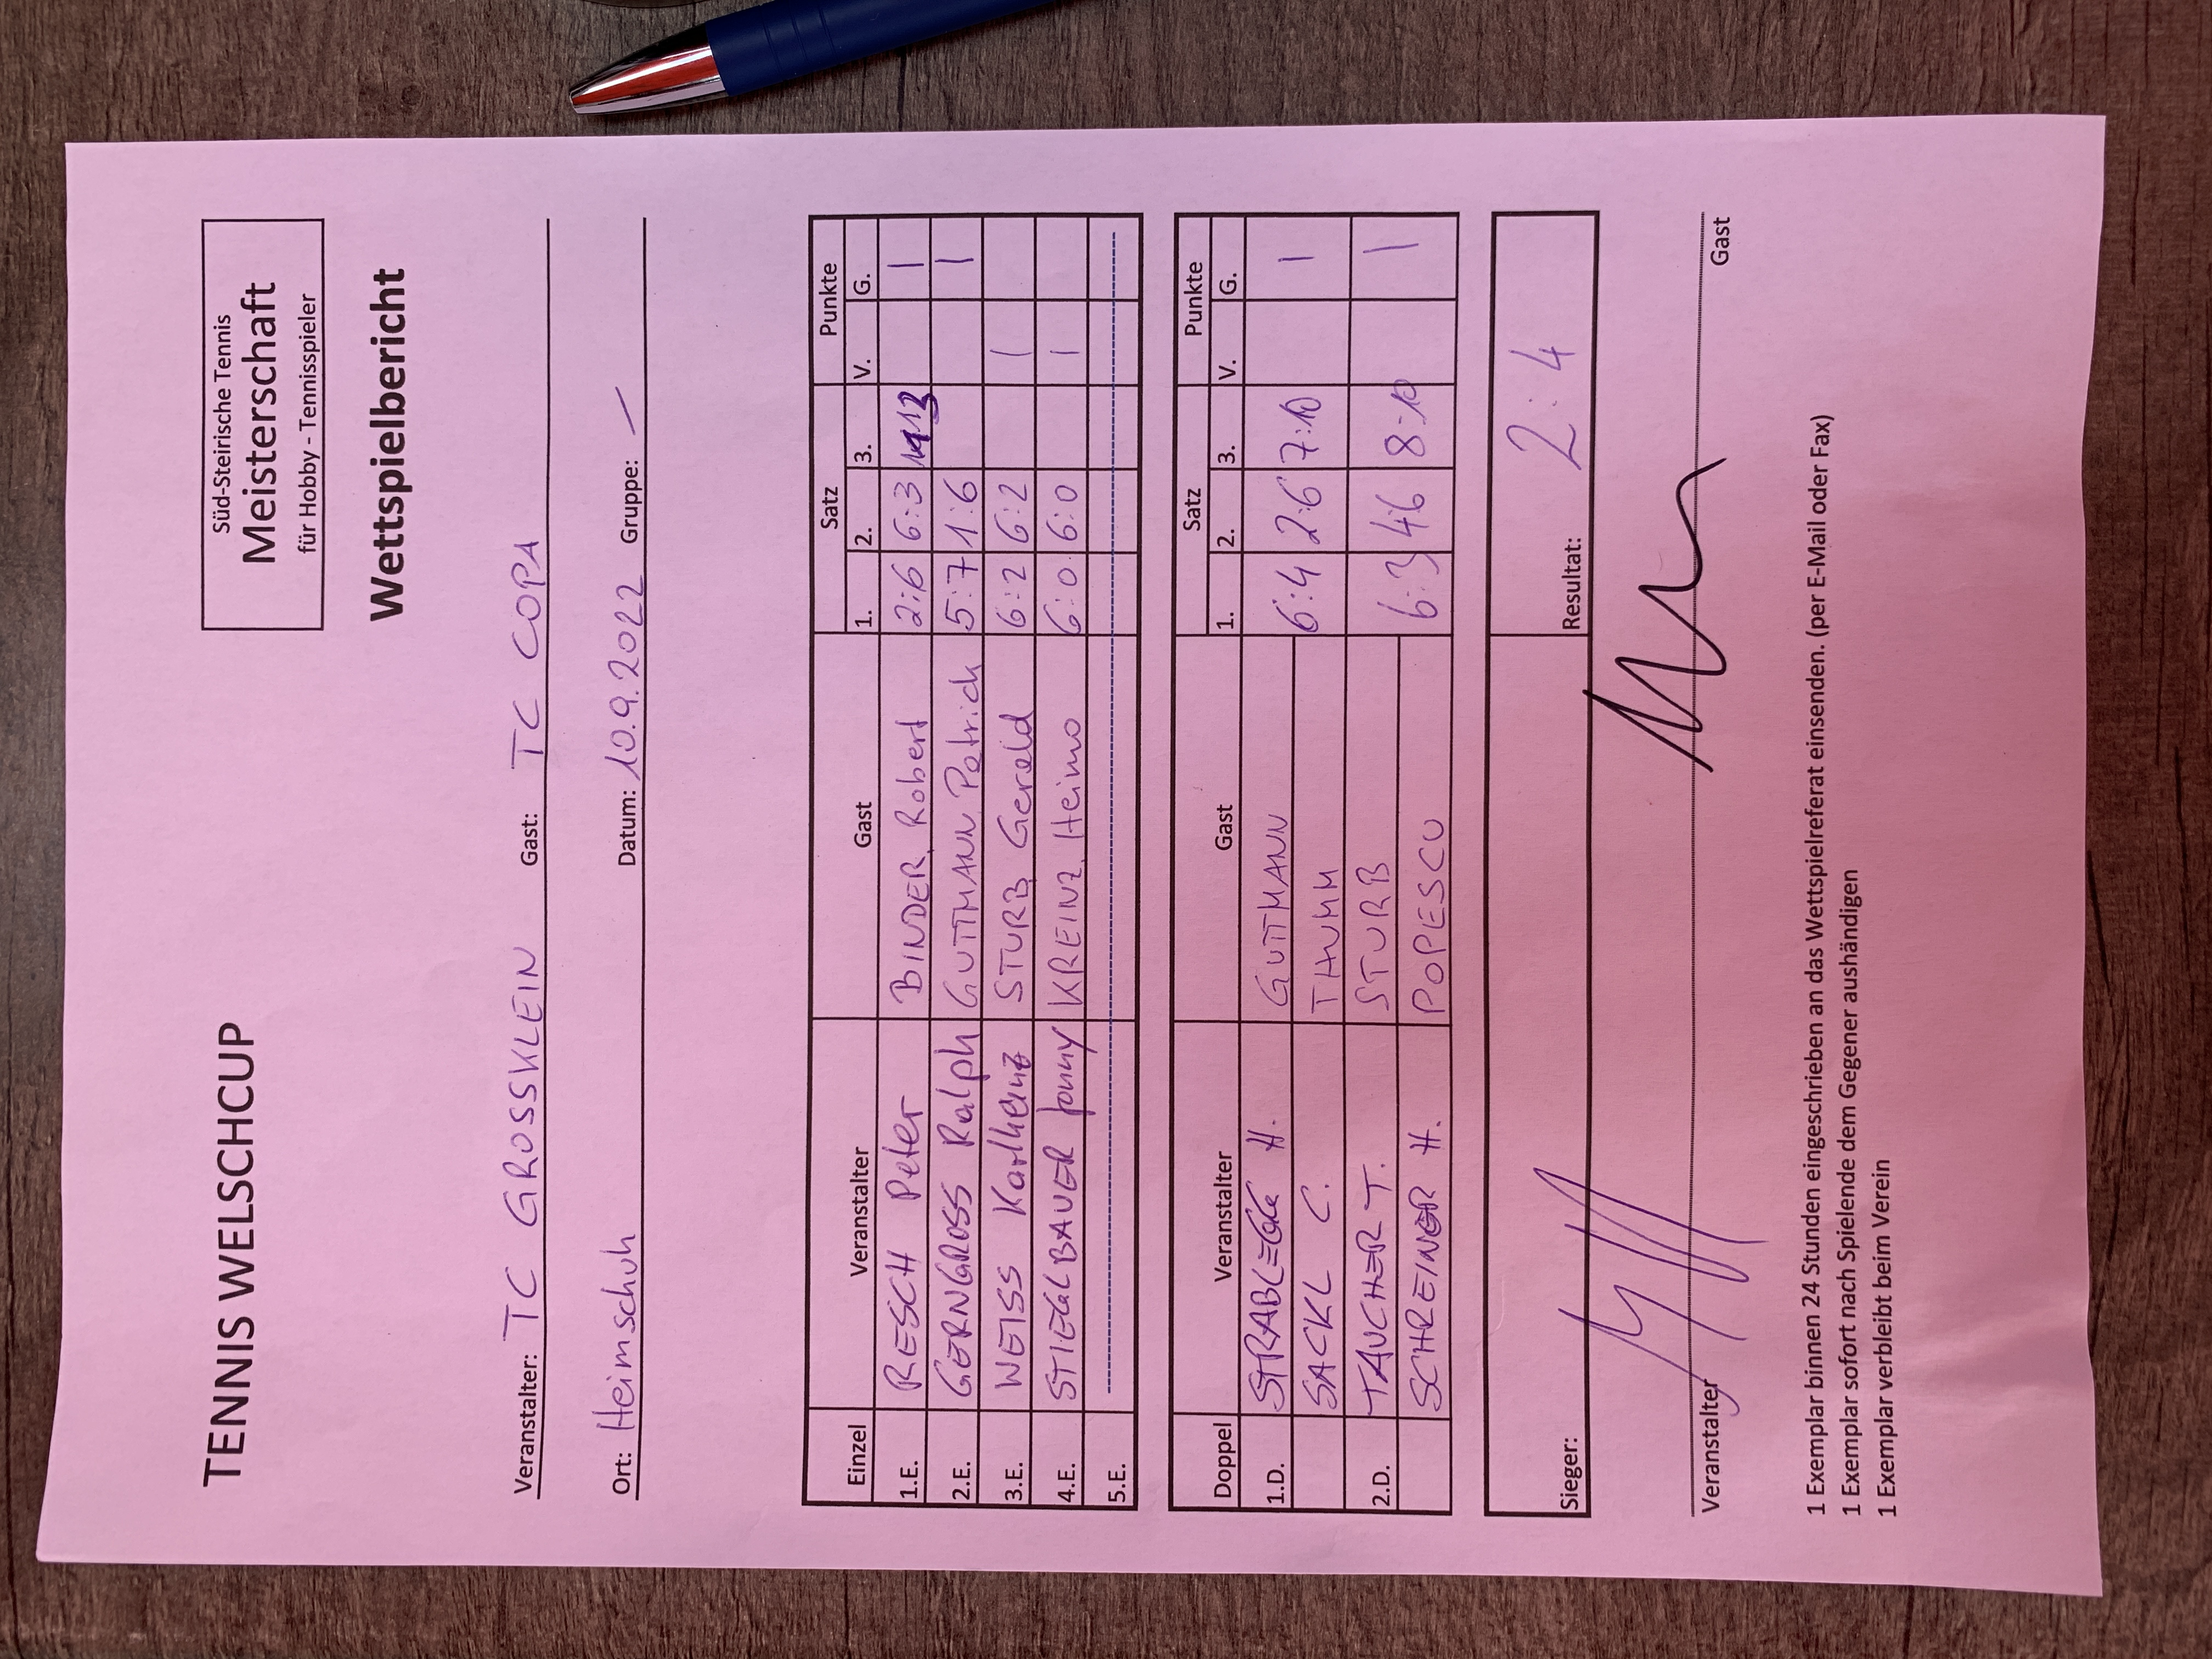 TENNIS WELSCHCUP
Süd-Steirische Tennis
Meisterschaft
für Hobby - Tennisspieler
Wettspielbericht
Veranstalter: TC GROSSKLEIN Gast: TC COPA
Ort: Heimschuh Datum: 10.9.2022 Gruppe: —
Einzel Veranstalter Gast Satz Punkte
1. 2. 3. V. G.
1.E. RESCH Peter BINDER Robert 2:6 6:3 1
2.E. GERNGROSS Ralph GUTTMANN Patrick 5:7 1:6 1
3.E. WEISS Karlheinz STURB Gerald 6:2 6:2 1
4.E. STIEGLBAUER Jonny KREINZ Heimo 6:0 6:0 1
5.E.
Doppel Veranstalter Gast Satz Punkte
1. 2. 3. V. G.
1.D. STRABLEGG H. GUTTMANN 6:4 2:6 7:10 1
SACKL C. THUMM
2.D. TAUCHER T. STURB 6:3 4:6 8:10 1
SCHREINER H. POPESCU
Sieger: Resultat: 2:4
Veranstalter Gast
1 Exemplar binnen 24 Stunden eingeschrieben an das Wettspielreferat einsenden. (per E-Mail oder Fax)
1 Exemplar sofort nach Spielende dem Gegener aushändigen
1 Exemplar verbleibt beim Verein